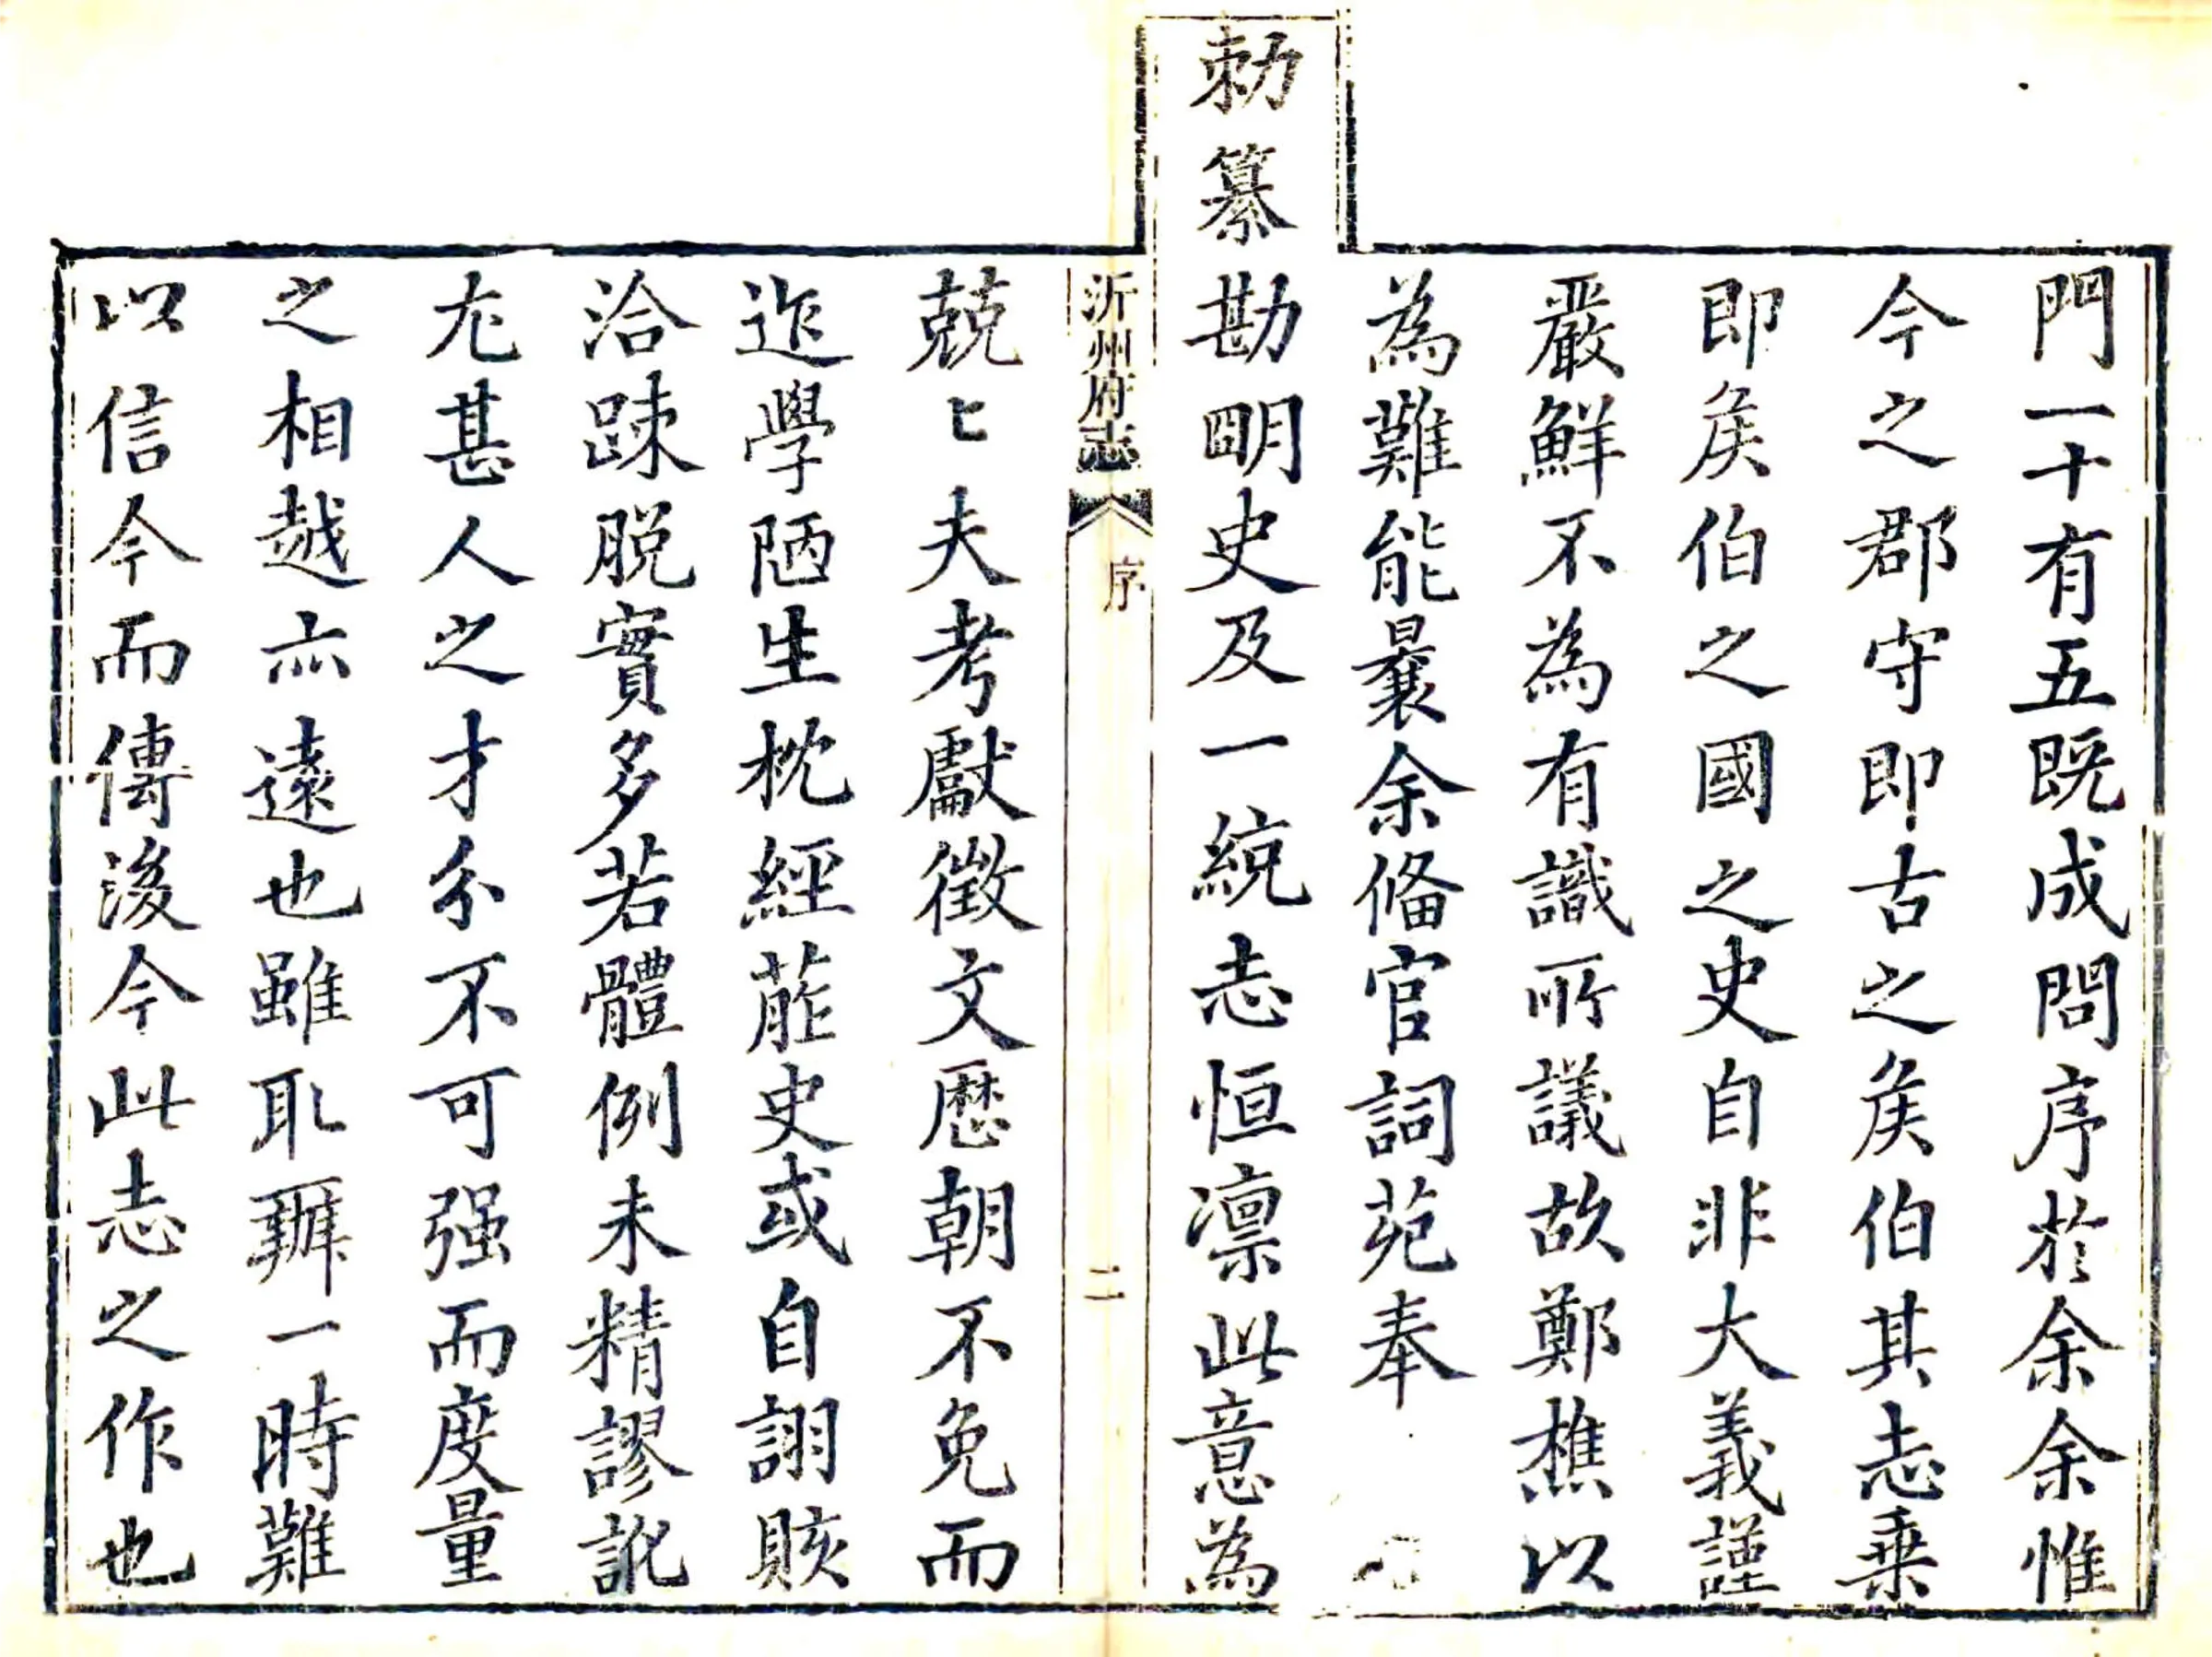 門一十有五既成問序於余余惟
今之郡守即古之矦伯其志乗
即矦伯之國之史自非大義謹
嚴鮮不為有識所議故鄭樵以
為難能曩余俻官詞苑奉
勅纂勘明史及一統志恒凛此意為
沂州府志
序
二
兢〻夫考獻徵文歷朝不免而
迩學陋生枕經葄史或自詡賅
洽踈脱實多若體例未精謬訛
尤甚人之才分不可强而度量
之相越亦遠也雖耴辦一時難
以信今而傳後今此志之作也